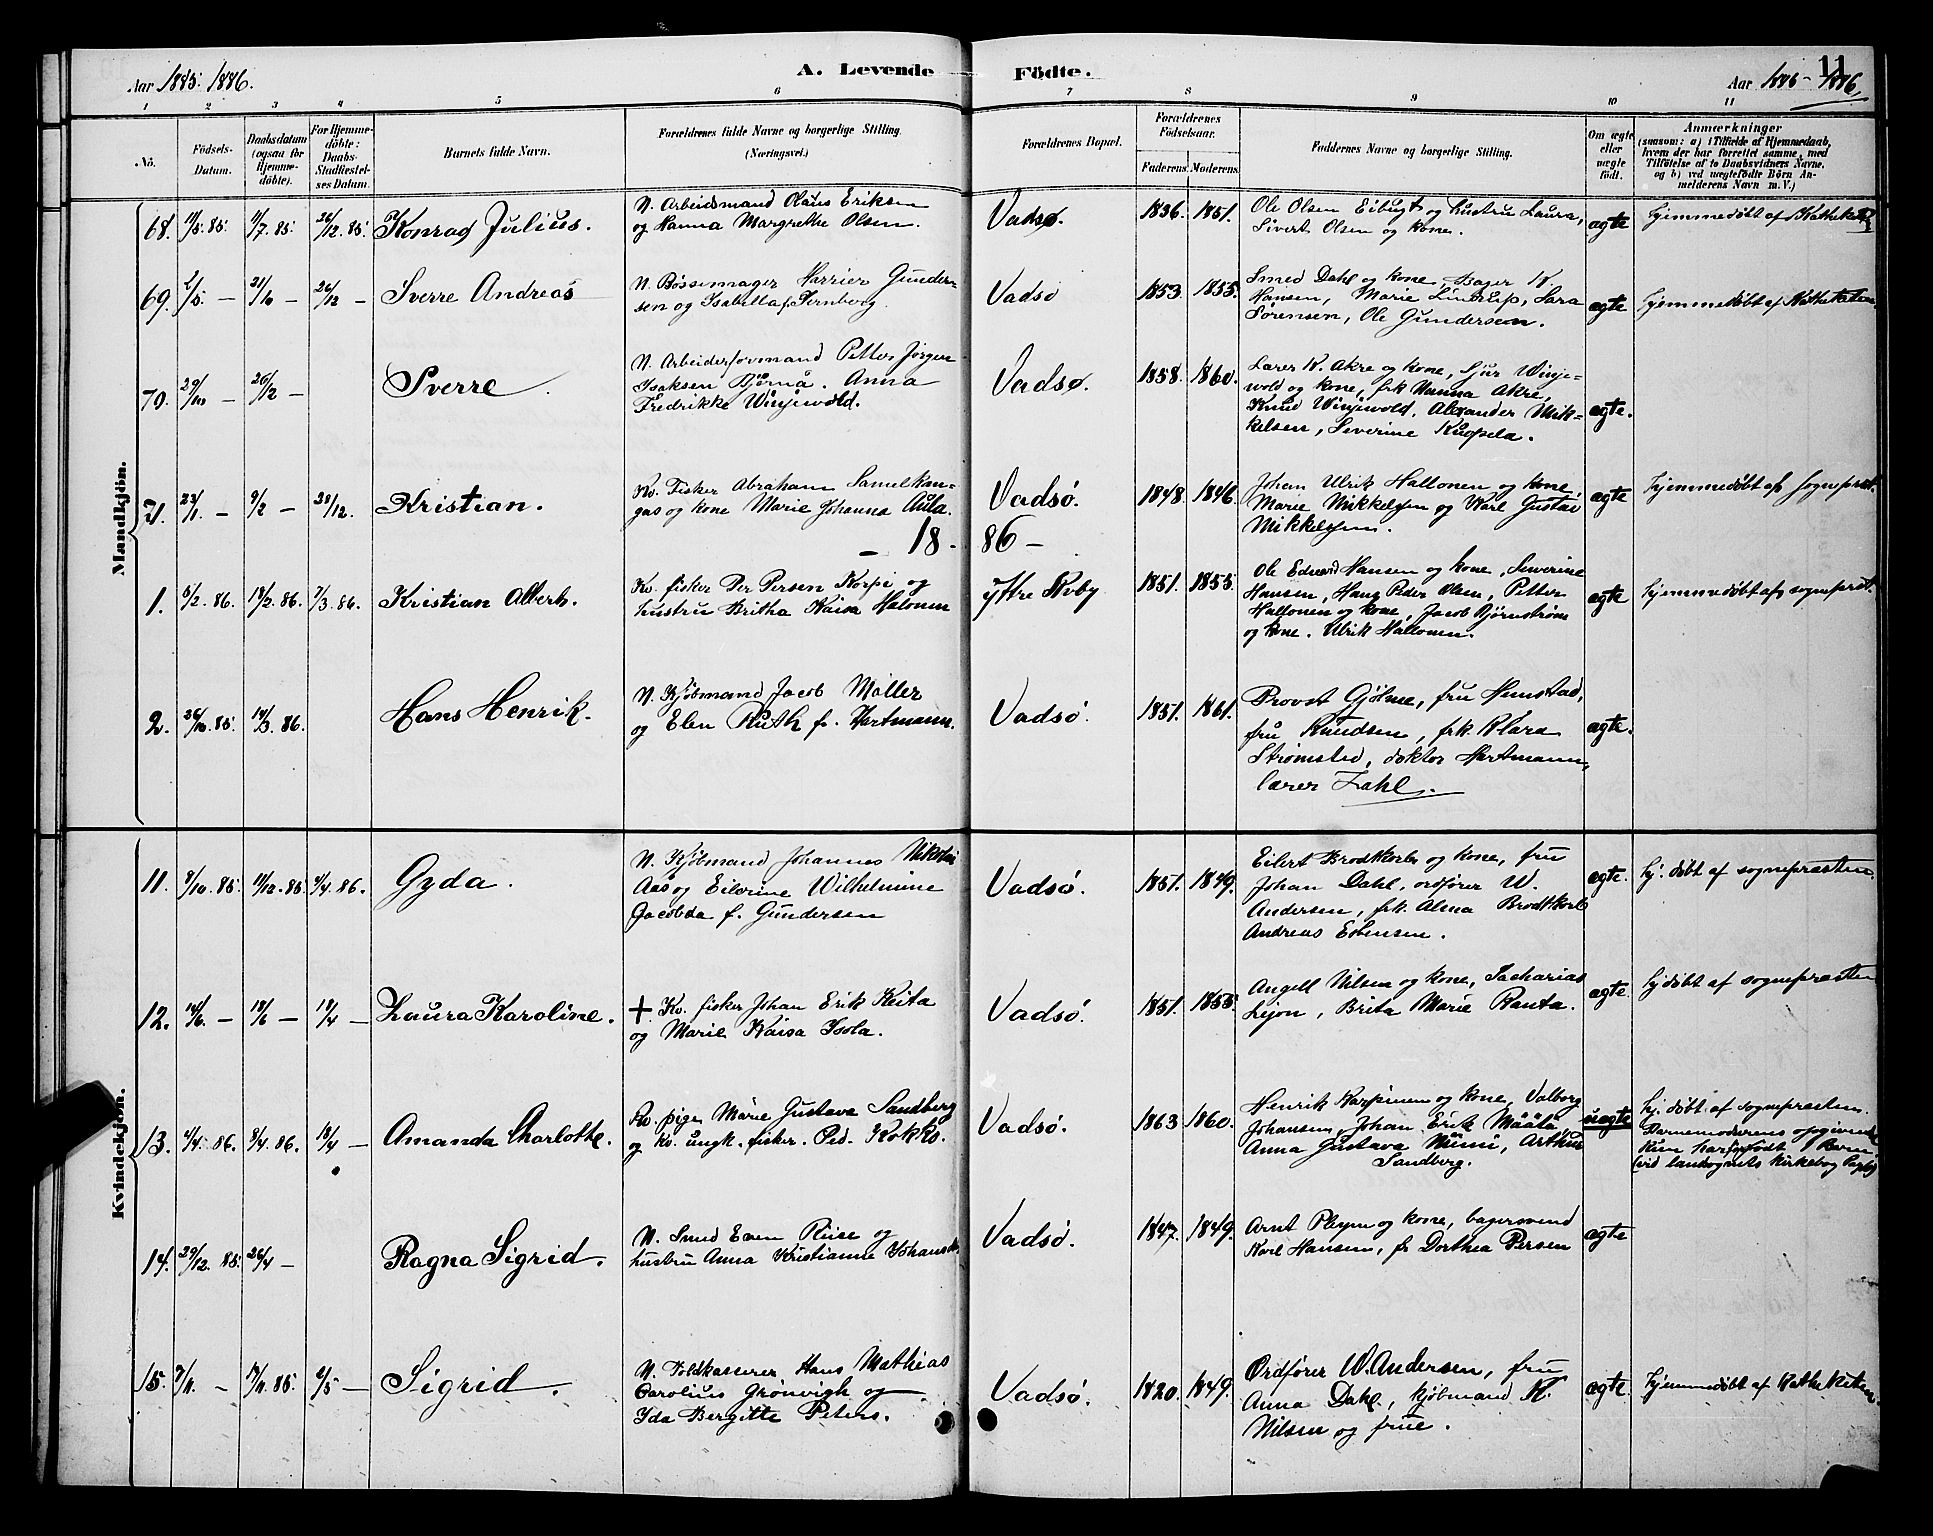 Aar 1885. 1886. A. Levende Födte. Aar 1885 - 1886. 11
1 2 3 4 5 6 7 8 9 10 11
No. Födsels-Datum. Daabsdatum (ogsaa for Hjemme-döbte). For Hjemme-döbte: Daabs-Stadfæstel-ses Datum. Barnets fulde Navn. Forældrenes fulde Navne og borgerlige Stilling. (Næringsvei.) Forældrenes Bopæl. Forældrenes Födselsaar. Faderens. Moderens. Faddernes Navne og borgerlige Stilling. Om ægte eller uægte födt. Anmærkninger (saasom: a) i Tilfælde af Hjemmedaab, hvem der har forrettet samme, med Tilföielse af to Daabsvidners Navne, og b) ved uægtefödte Börn An-melderens Navn m. V.)
Mandkjön.
68. 11/5. 85. 9/7. 85. 26/12. 85. Konrad Julius.
N. Arbeidsmand Olaus Eriksen
og Hanna Margrethe Olsen.
Vadsø. 1836. 1851.
Ole Olsen Eibugt og hustru Laura,
Sivert Olsen og kone.
ægte
Hjemmedøbt af Katheketen
69. 2/5. — 21/10 — 26/12 — Sverre Andreas
N. Bøssemager Harrier Gunder-
sen og Isabella f. Fernborg.
Vadsø 1853. 1855.
Smed Dahl og kone, Bager K.
Hansen, Marie Lindrup, Lara
Sørensen, Ole Gundersen.
ægte
Hjemmedøbt af Katheketen
70. 29/10 — 26/12 — Sverre.
N. Arbeiderformand Petter Jørgen
Isaksen Bjørnå. Anna
Fredrikke Winjewold.
Vadsø. 1858. 1860.
Lærer K. Akre og kone, Sjur Winje-
wold og kone, frk Hanna Akre,
Knud Winjewold, Alexander Mik-
kelsen, Severine Kuopela.
ægte.
71. 23/1. — 9/2 — 28/12. Kristian.
Kv. Fisker Abraham Samelkan-
gas og kone Marie Johanna Aula.
Vadsø. 1848. 1846.
Johan Ulrik Hallonen og kone,
Marie Mikkelsen og Karl Gustav
Mikkelsen.
ægte
Hjemmedøbt af Sogneprest.
— 18 - 86 —
1. 5/2. 86. 18/2. 86. 7/3. 86. Kristian Albert.
Kv. fisker Per Persen Korpi og
hustru Britha Kaisa Halonen
Yttre Kvby 1851. 1855
Ole Edvard Hansen og kone, Severine
Hansen, Hans Peder Olsen, Petter
Hallonen og kone, Jacob Bjørnstrøm
og kone. Ulrik Hallonen.
ægte
Hjemmedøbt af sogneprest.
2. 26/10. 85. 14/3. 86. Hans Henrik.
N. Kjøbmand Jacob Møller
og Elen Ruth f. Hartmann.
Vadsø. 1851. 1861.
Provst Gjølme, fru Hunstad,
fru Knudsen, frk Klara
Strømsted, doktor Hartmann,
lærer Zahl.
ægte.
Kvindekjön.
11. 8/10. 85. 11/12. 85. 4/4. 86. Gyda.
N. Kjøbmand Johannes Nikolai
Aas og Eilerine Wilhelmine
Jacobda f. Gundersen
Vadsø. 1851. 1849.
Eilert Brodtkorb og kone, fru
Johan Dahl, ordfører W.
Andersen, frk. Alma Brodtkorb
Andreas Esbensen.
ægte.
Hj. døbt af sognepræsten.
12. 14/6. — 18/6 — 18/4 — Laura Karoline.
+ Kv. fisker Johan Erik Keita
og Marie Kaisa Isola.
Vadsø. 1851. 1855.
Angell Nilsen og kone, Sacharias
Lejon, Brita Marie Ranta.
ægte.
Hj døbt af sognepræsten
13. 4/4. 86. 8/4. 86. 18/4 — Amanda Charlotte.
Kv. pige Marie Gustava Sandberg
og Kv. ungk. fisker. Ped. Kokko.
Vadsø. 1863 1860.
Henrik Karpinen og kone, Valborg
Johansen, Johan Erik Määtä,
Anna Gustava Niemi, Arthur
Sandberg.
uægte
Hj. døbt af sognepræsten.
Barnemoderens opgivende
Kun har født 1 Barn
(vid landsognets kirkebog
14. 29/12. 85. 26/4 — Ragna Sigrid.
N. Smed Even Riise og
hustru Anna Kristianne Johansd.
Vadsø. 1847. 1849.
Arnt Pleym og kone, bagersvend
Karl Hansen, fr Dorthea Persen
ægte
15. 7/11. — 17/11. 85. 2/5 — Sigrid.
N. Toldkasserer Hans Mathias
Carolius Grönvigh og
Ida Bergitte Peters.
Vadsø. 1820. 1849.
Ordfører W. Andersen, fru
Anna Dahl, kjøbmand K.
Nilsen og frue.
ægte.
Hjemmedøbt af Katheketen.